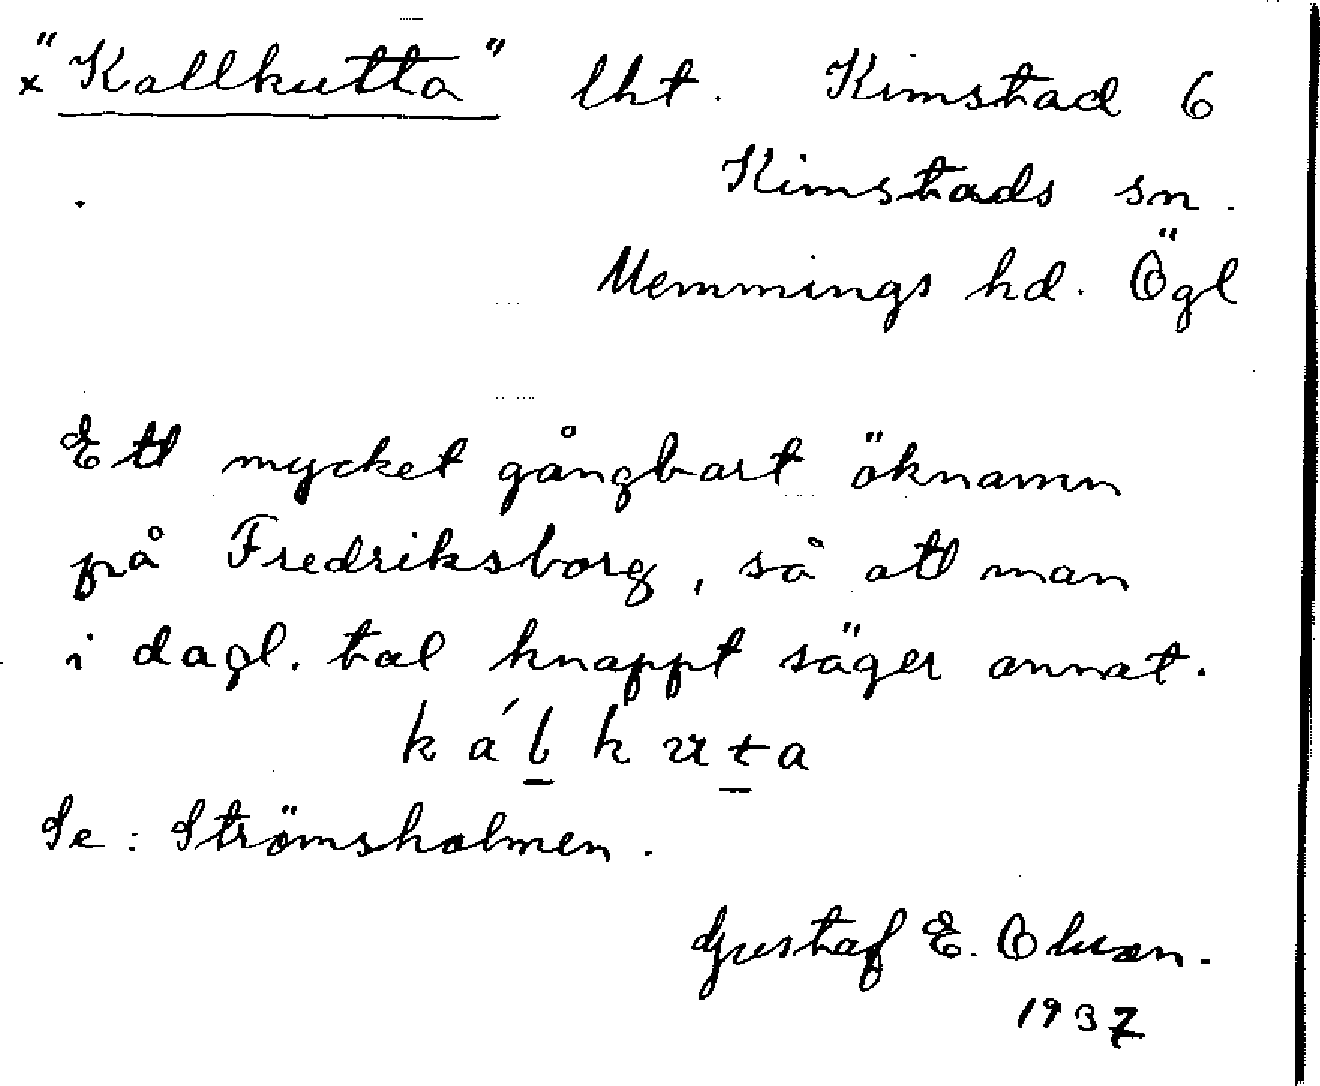 x "Kallkutta" lht. Kimstad 6
Kimstads sn.
Memmings hd. Ögl
Ett mycket gångbart öknamn
på Fredriksborg, så att man
i dagl. tal knappt säger annat.
kálkuta
Se: Strömsholmen.
Gustaf E. Olsson.
1937